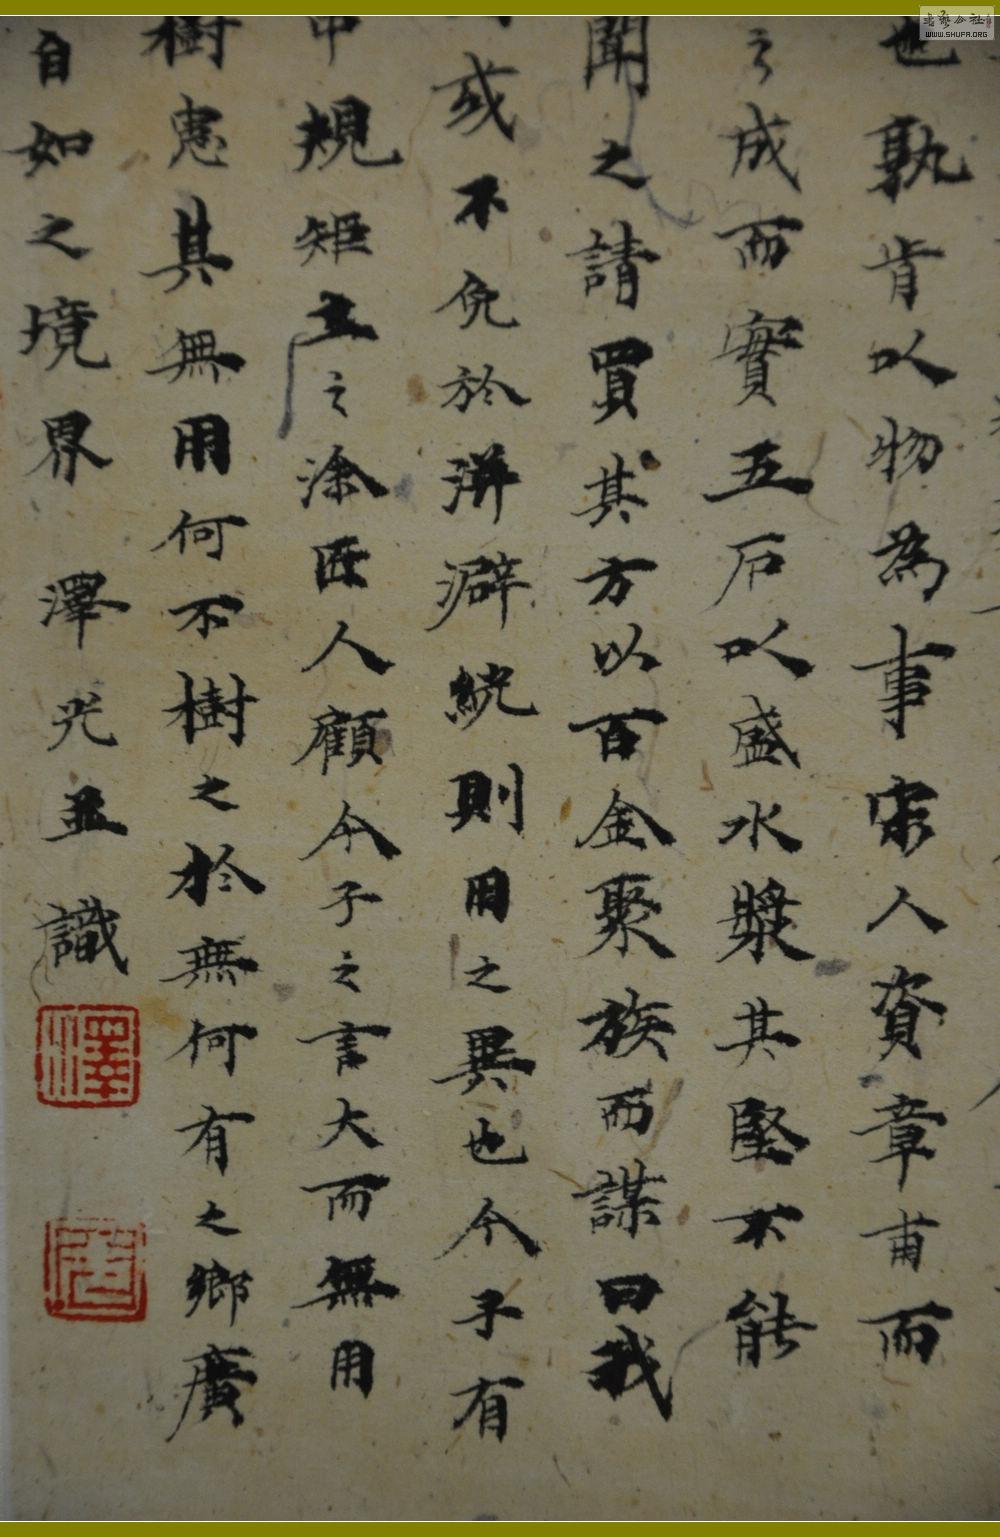 也孰肯以物為事宋人資章甫而
之成而實五石以盛水漿其堅不能
聞之請買其方以百金聚族而謀曰我
或不免於洴澼絖則用之異也今子有
中規矩立之涂匠人顧今子之言大而無用
樹患其無用何不樹之於無何有之鄉廣
自如之境界 澤光並識
WWW.SHUFA.ORG